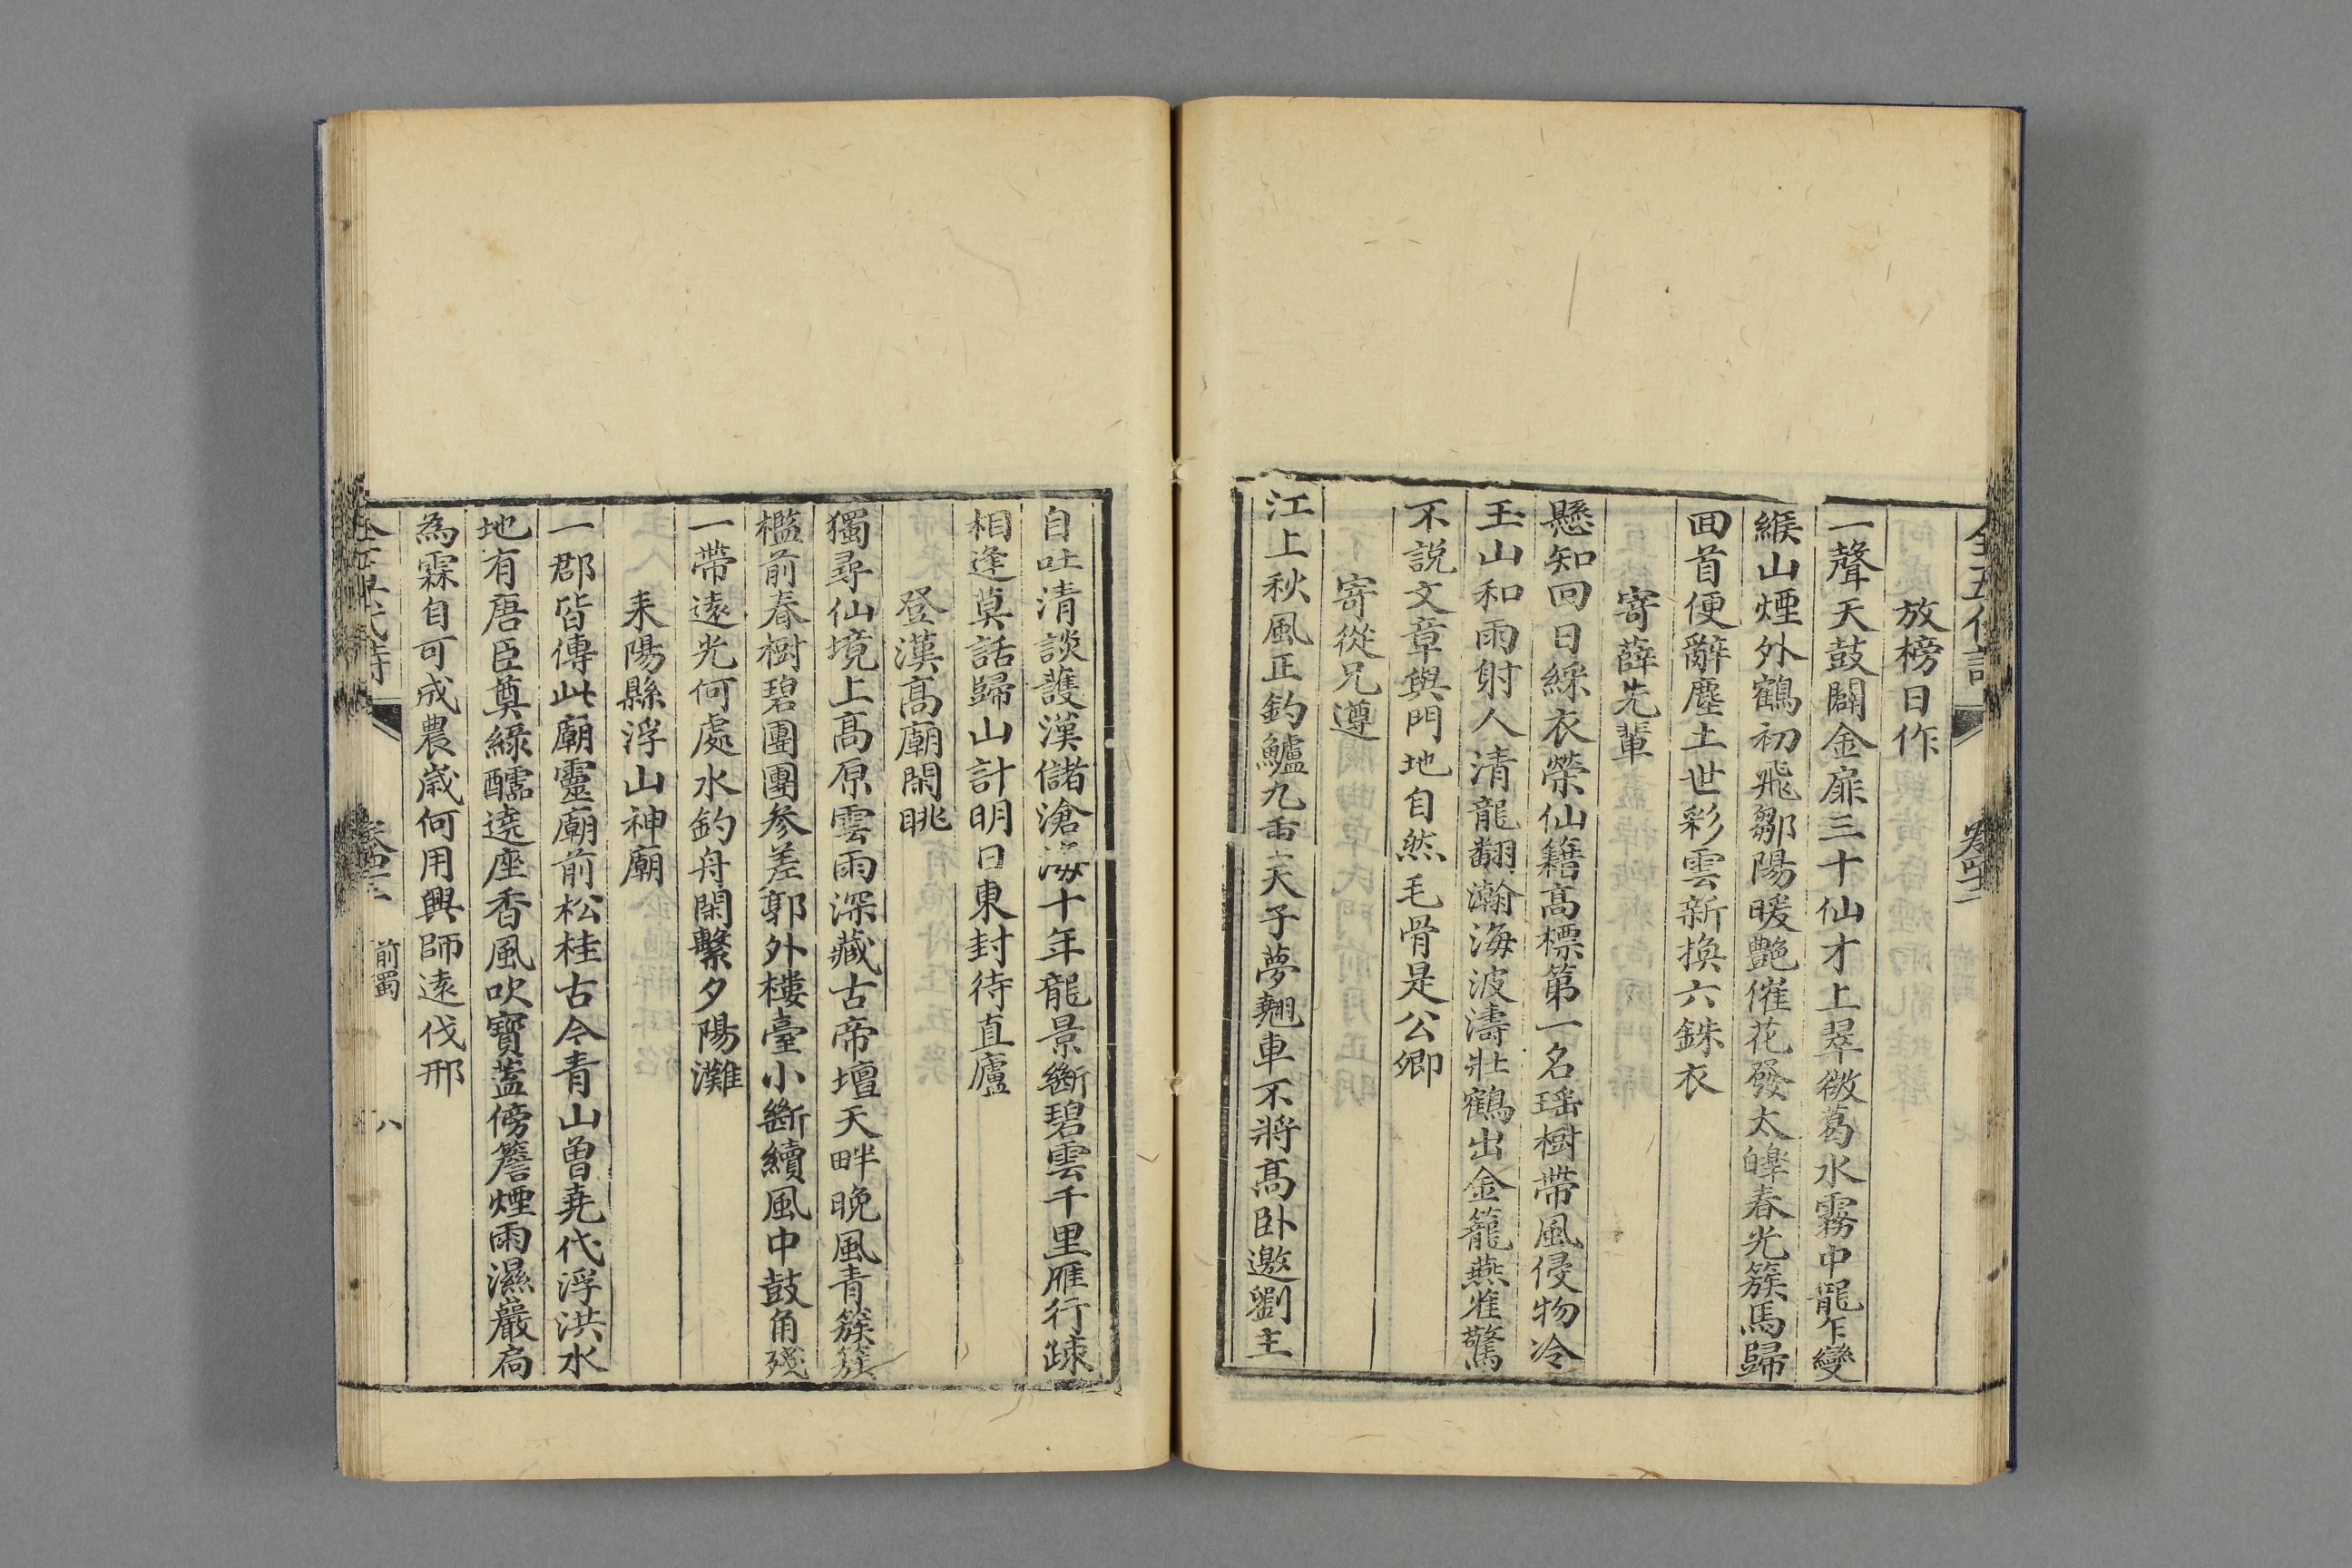 放榜日作
一聲天鼓闢金扉三十仙才上翠微葛水霧中龍乍變
緱山煙外鶴初飛鄒陽暖艶催花發太皥春光簇馬歸
回首便辭塵土世彩雲新換六銖衣
寄薛先輩
懸知回日綵衣榮仙籍髙標第一名瑶樹帶風侵物冷
玉山和雨射人清龍翻瀚海波濤壯鶴出金籠燕雀驚
不説文章與門地自然毛骨是公卿
寄從兄遵
江上秋風正釣鱸九重天子夢翹車不將髙卧邀劉主
自吐清談護漢儲滄海十年龍景斷碧雲千里雁行疎
相逢莫話歸山計明日東封待直廬
登漢髙廟閑眺
獨尋仙境上髙原雲雨深藏古帝壇天畔晚風青簇簇
檻前春樹碧團團参差郭外樓臺小斷續風中鼓角殘
一帶逺光何處水釣舟閑繫夕陽灘
耒陽縣浮山神廟
一郡皆傳此廟靈廟前松桂古今青山曽堯代浮洪水
地有唐臣奠緑醽遶座香風吹寳蓋傍簷煙雨濕巖扃
為霖自可成農歳何用興師逺伐邢
前蜀
八